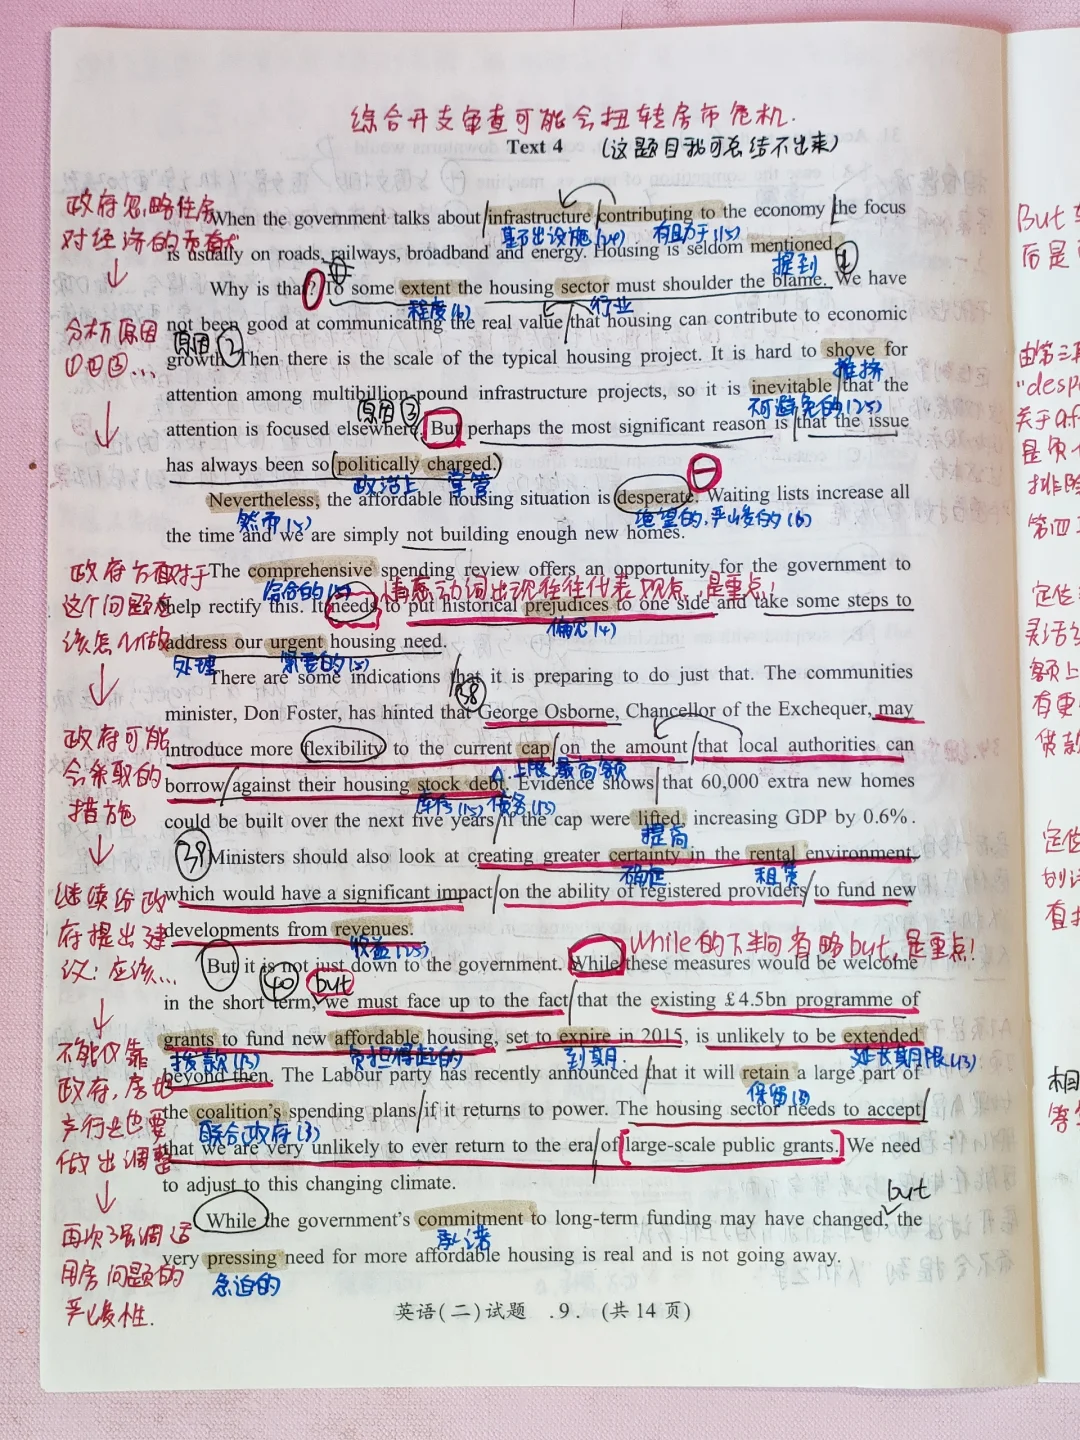 综合开支审查可能会扭转房市危机.
Text 4 (这题目我可总结不出来)
政府忽略住房
对经济的贡献
When the government talks about infrastructure contributing to the economy the focus
基础设施(24) 有助于(15)
is usually on roads, railways, broadband and energy. Housing is seldom mentioned.
提到 ①
Why is that? To some extent the housing sector must shoulder the blame. We have
程度(6) 行业
分析原因
①②③...
not been good at communicating the real value that housing can contribute to economic
原因②
growth. Then there is the scale of the typical housing project. It is hard to shove for
推挤
attention among multibillion-pound infrastructure projects, so it is inevitable that the
原因③ 不可避免的(25)
attention is focused elsewhere. But perhaps the most significant reason is that the issue
has always been so politically charged.
政治上 掌管
Nevertheless, the affordable housing situation is desperate. Waiting lists increase all
然而 绝望的,严峻的(6)
the time and we are simply not building enough new homes.
政府方面对于
这个问题应
该怎么做
The comprehensive spending review offers an opportunity for the government to
综合的 情态动词出现往往代表观点,是重点!
help rectify this. It needs to put historical prejudices to one side and take some steps to
偏见(4)
address our urgent housing need.
处理 紧要的
There are some indications that it is preparing to do just that. The communities
38
minister, Don Foster, has hinted that George Osborne, Chancellor of the Exchequer, may
政府可能
会采取的
措施
introduce more flexibility to the current cap on the amount that local authorities can
上限,最高额
borrow against their housing stock debt. Evidence shows that 60,000 extra new homes
库存(15) 债务(15)
could be built over the next five years if the cap were lifted, increasing GDP by 0.6%.
提高
39
Ministers should also look at creating greater certainty in the rental environment,
确定 租赁
继续给政
府提出建
议:应该...
which would have a significant impact on the ability of registered providers to fund new
developments from revenues.
收益(25) While的下半句有略but,是重点!
But it is not just down to the government. While these measures would be welcome
40 but
in the short term, we must face up to the fact that the existing £4.5bn programme of
不能仅靠
政府,房地
产行业也要
做出调整
grants to fund new affordable housing, set to expire in 2015, is unlikely to be extended
拨款(13) 负担得起的 到期. 延长期限(13)
beyond then. The Labour party has recently announced that it will retain a large part of
保留(3)
the coalition's spending plans if it returns to power. The housing sector needs to accept
联合政府(3)
that we are very unlikely to ever return to the era of large-scale public grants. We need
to adjust to this changing climate.
but
再次强调
用房问题的
严峻性.
While the government's commitment to long-term funding may have changed, the
承诺
very pressing need for more affordable housing is real and is not going away.
急迫的
英语(二)试题 .9. (共14页)
But
后是
由第三
"desp
关于aff
是负
排除
第四
定位
灵活
额上
有更
贷款
定位
的
直接
相
等